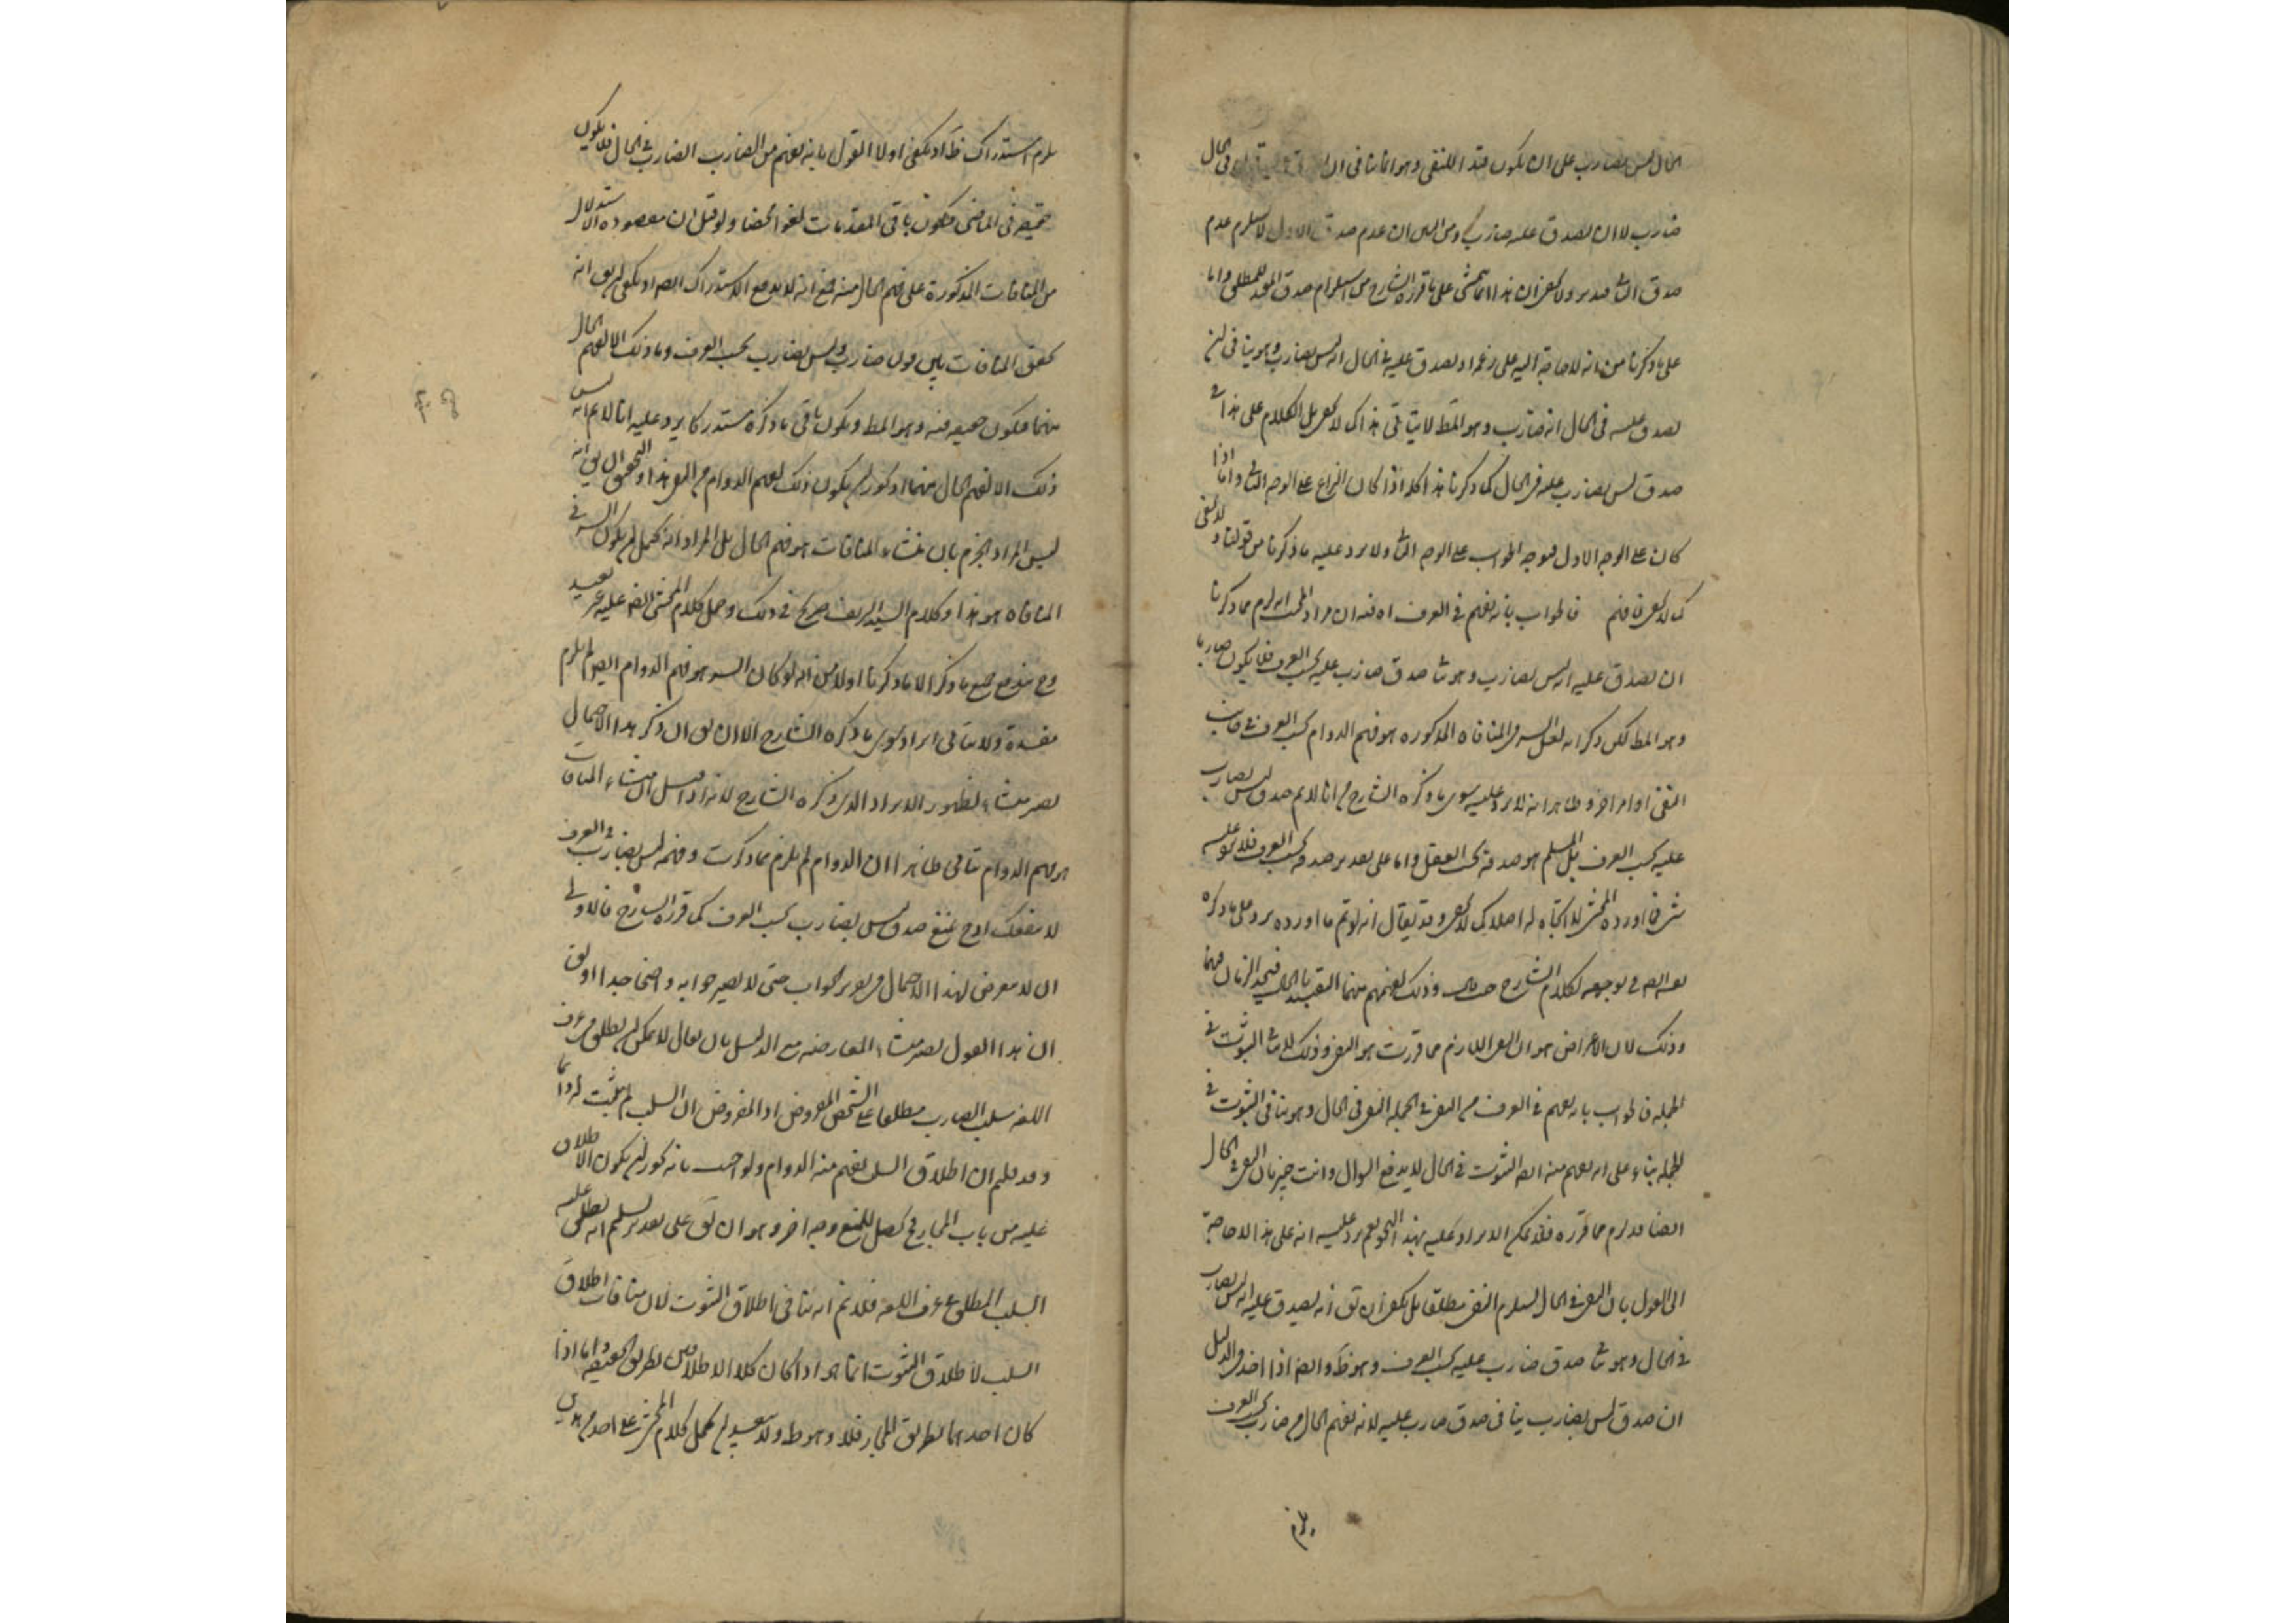 الحال ليس بضارب على ان يكون قيدا للنفى وهو انما ينافى ان فى الحال
ضارب لا ان يصدق عليه ضارب ومن البين ان عدم صدق الاول لا يستلزم عدم
صدق الثانى فتدبر ولا يخفى ان هذا انما يتمشى على ما قرره الشارح من استلزام صدق المقيد المطلق واما
على ما ذكرنا من انه لا حاجة اليه على زعمه او يصدق عليه فى الحال انه ليس بضارب وهو ينافى ان
يصدق عليه فى الحال انه ضارب وهو المط لا يتاتى هذا كما لا يخفى بل الكلام على هذا فى
صدق ليس بضارب عليه فى الحال كما ذكرنا هذا كله اذا كان النزاع على الوجه الثانى واما اذا
كان على الوجه الاول فتوجه الجواب على الوجه الثانى ولا يرد عليه ما ذكرنا من قولنا
كما لا يخفى فافهم فالجواب بانه يفهم فى العرف اه فيه ان مراد المجيب انه لزم مما ذكرنا
ان يصدق عليه انه ليس بضارب وهو ينافى صدق ضارب عليه بحسب العرف فلا يكون ضاربا
وهو المط لكن ذكر انه لعل السر فى المنافاة المذكورة هو فهم الدوام بحسب العرف فى جانب
النفى او امر اخر وظاهر انه لا يرد عليه سوى ما ذكره الشارح من انا لا نم صدق ليس بضارب
عليه بحسب العرف بل المسلم هو صدقه بحسب العقل واما على تقدير صدقه بحسب العرف فلا يتوجه عليه
شىء فما اورده المحشى لا اتجاه له اصلا كما لا يخفى وقد يقال انه لو تم ما اورده يرد على ما ذكره
فى توجيهه لكلام الشارح وذلك لفهم منهما التقييد بالحال فيتحد الزمان فيهما
وذلك لان الاعتراض هو ان النفى اللازم مما قررت هو النفى وذلك لا ينافى الثبوت فى
الجملة فالجواب بانه يفهم فى العرف من النفى فى الجملة النفى فى الحال وهو ينافى الثبوت فى
الجملة بناء على انه يفهم منه ايضا الثبوت فى الحال لا يدفع السؤال وانت خبير بان النفى فى الحال
ايضا قد لزم مما قرره فلا يمكن الايراد عليه بهذا النحو نعم يرد عليه انه على هذا لا حاجة
الى القول بان النفى فى الحال يستلزم النفى مطلقا بل يكفى ان يق انه يصدق عليه انه ليس بضارب
فى الحال وهو ينافى صدق ضارب عليه بحسب العرف وهو ظ وايضا اذا اخذ فى الدليل
ان صدق ليس بضارب ينافى صدق ضارب عليه لانه يفهم الحال من ضارب بحسب العرف
يلزم
يلزم استدراك ظ اذ يكفى اولا القول بانه يفهم من الضارب الضارب فى الحال فلا يكون
حقيقة فى الماضى فيكون باقى المقدمات لغوا محضا ولو قيل ان مقصوده الاستدلال
من المنافات المذكورة على فهم الحال منه فمع انه لا يدفع الاستدراك ايضا اذ يكفى ان يق انه
تحقق المنافات بين قول ضارب وليس بضارب بحسب العرف وما ذلك الا لفهم الحال
منهما فيكون حقيقة فيه وهو المط ويكون باقى ما ذكره مستدركا يرد عليه انا لا نم انه ليس
ذلك الا لفهم الحال منهما اذ يجوز ان يكون ذلك لفهم الدوام من النفى هذا والتحقيق ان يق انه
ليس المراد الجزم بان منشاء المنافات هو فهم الحال بل المراد انه يحتمل ان يكون السر فى
المنافاة هو هذا وكلام السيد الشريف صريح فى ذلك وحمل كلام المحشى ايضا عليه غير بعيد
وح يندفع جميع ما ذكر الا ما ذكرنا اولا من انه لو كان السر هو فهم الدوام ايضا لم يلزم
مفسدة ولا ينافى ايراد سوى ما ذكره الشارح الا ان يق ان ذكر هذا الاحتمال
يصير منشاء لظهور الايراد الذى ذكره الشارح لانه اذا قيل ان منشاء المنافات
هو فهم الدوام ينافى ظاهرا ان الدوام لم يلزم مما ذكرت وفهمه ليس بضارب فى العرف
لا ينفعك اذ ح يمنع صدق ليس بضارب بحسب العرف كما قرره الشارح فالاولى
ان لا يتعرض لهذا الاحتمال فى تقرير الجواب حتى لا يصير جوابه واضحا جدا او يق
ان هذا القول يصير منشاء المعارضة مع الدليل بان يقال لا يمكن ان يطلق فى عرف
اللغة سلب الضارب مطلقا على الشخص المفروض اذ المفروض ان السلب لم يثبت له دائما
وقد علم ان اطلاق السلب يفهم منه الدوام ولو اجيب بانه يجوز ان يكون الاطلاق
عليه من باب المجاز فح يحصل للمنع وجه اخر وهو ان يق على تقدير تسليم انه يطلق عليه
السلب المطلق فى عرف اللغة فلا نم انه ينافى اطلاق الثبوت لان منافات اطلاق
السلب لاطلاق الثبوت انما هو اذا كان كلا الاطلاقين بطريق الحقيقة واما اذا
كان احدهما بطريق المجاز فلا وهو ظ ولا يبعد ان يحمل كلام المحشى على احد هذين